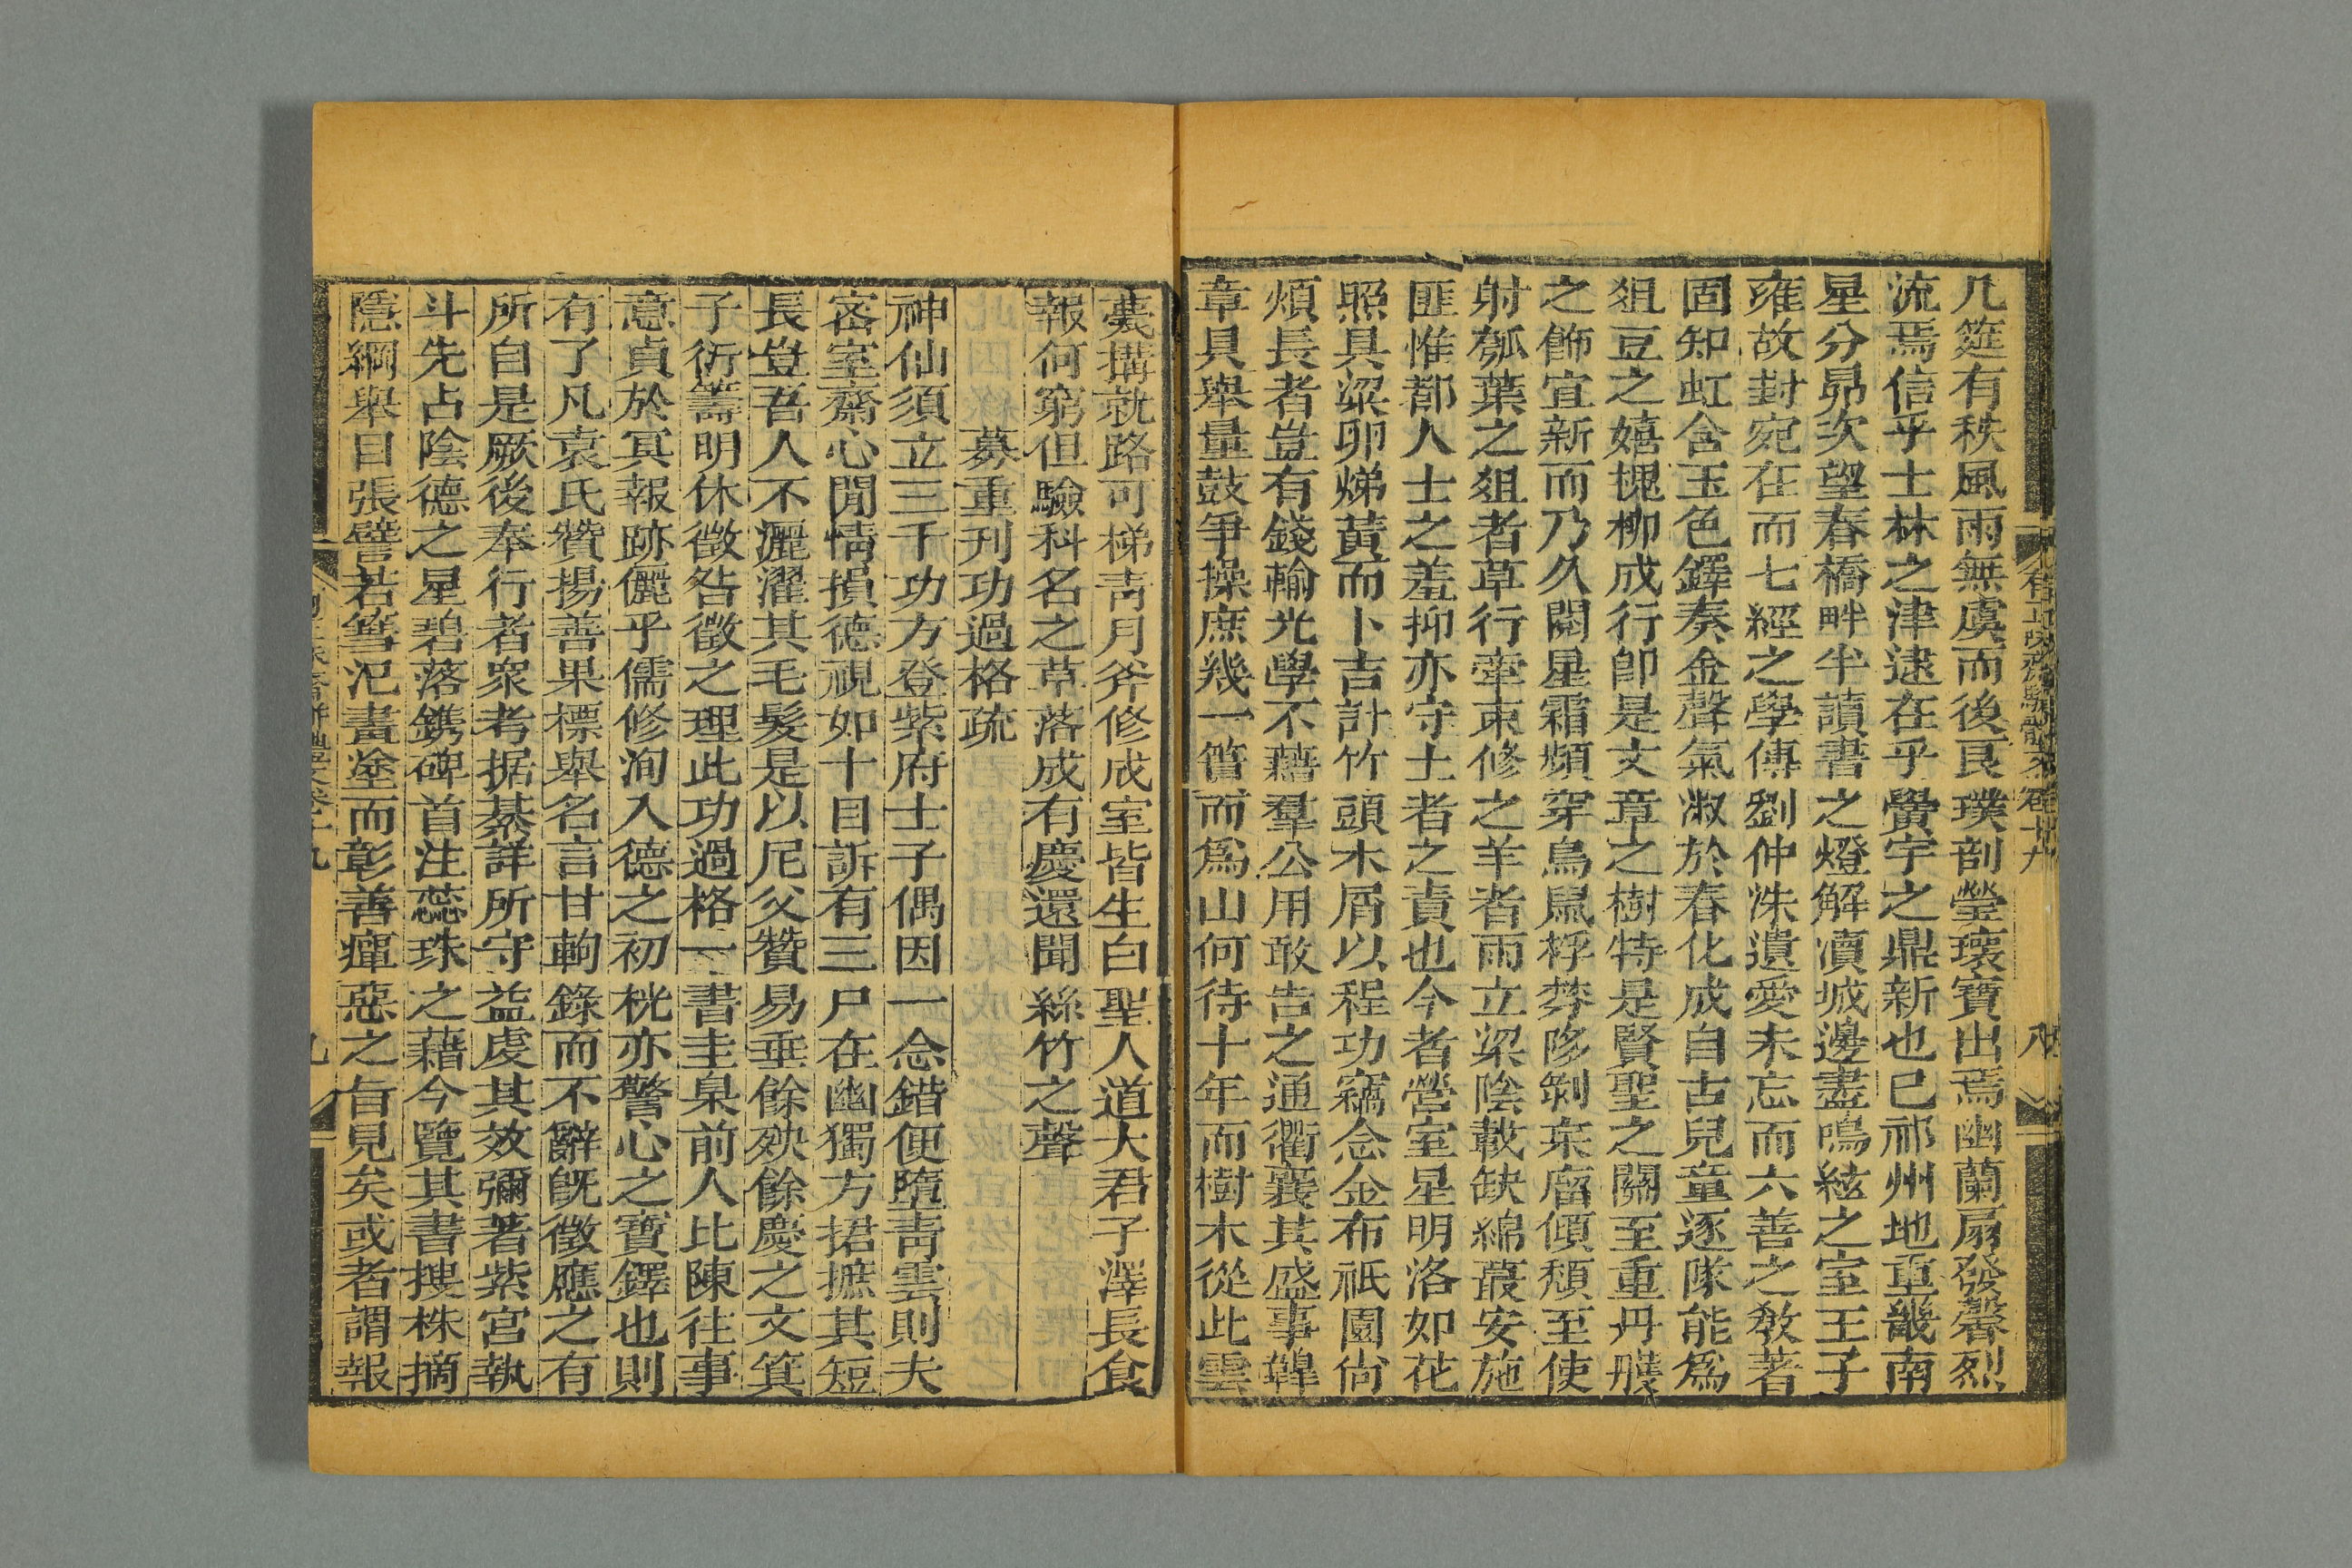 几筵有秩風雨無虞而後艮璞剖瑩瓌寶出焉幽蘭扇發馨烈
流焉信乎士林之津逮在乎黌宇之鼎新也已祁州地重畿南
星分昴次望春橋畔半讀書之燈解凟城邊盡鳴絃之室王子
雍故封宛在而七經之學傳劉仲洙遺愛未忘而六善之教著
固知虹含玉色鐸奏金聲氣淑於春化成自古兒童逐隊能爲
俎豆之嬉槐柳成行卽是文章之樹特是賢聖之關至重丹雘
之飾宜新而乃久閱星霜頻穿鳥鼠桴棼陊剝杗廇傾頹至使
射瓠葉之俎者草行牽束修之羊者雨立梁陰載缺綿蕞安施
匪惟都人士之羞抑亦守土者之責也今者營室星明洛如花
照具粱卵烯黃而卜吉計竹頭木屑以程功竊念金布祇園尙
煩長者豈有錢輸光學不藉羣公用敢告之通衢襄其盛事鼛
章具舉量鼓爭操庶幾一簣而爲山何待十年而樹木從此雲
囊搆就路可梯靑月斧修成室皆生白聖人道大君子澤長食
報何窮但驗科名之草落成有慶還聞絲竹之聲
募重刊功過格疏
神仙須立三千功方登紫府士子偶因一念錯便墮靑雲則夫
密室齋心閒情損德視如十目訴有三尸在幽獨方捃摭其短
長豈吾人不灑濯其毛髮是以尼父贊易垂餘殃餘慶之文箕
子衍籌明休徵咎徵之理此功過格一書圭臬前人比陳往事
意貞於冥報跡儷乎儒修洵入德之初桄亦警心之寶鐸也則
有了凡袁氏贊揚善果標舉名言甘軥錄而不辭旣徵應之有
所自是厥後奉行者衆考据綦詳所守益虔其效彌著紫宮執
斗先占陰德之星碧落鐫碑首注蕊珠之藉今覽其書搜株摘
隱綱舉目張譬若篲汜畫塗而彰善癉惡之旨見矣或者謂報